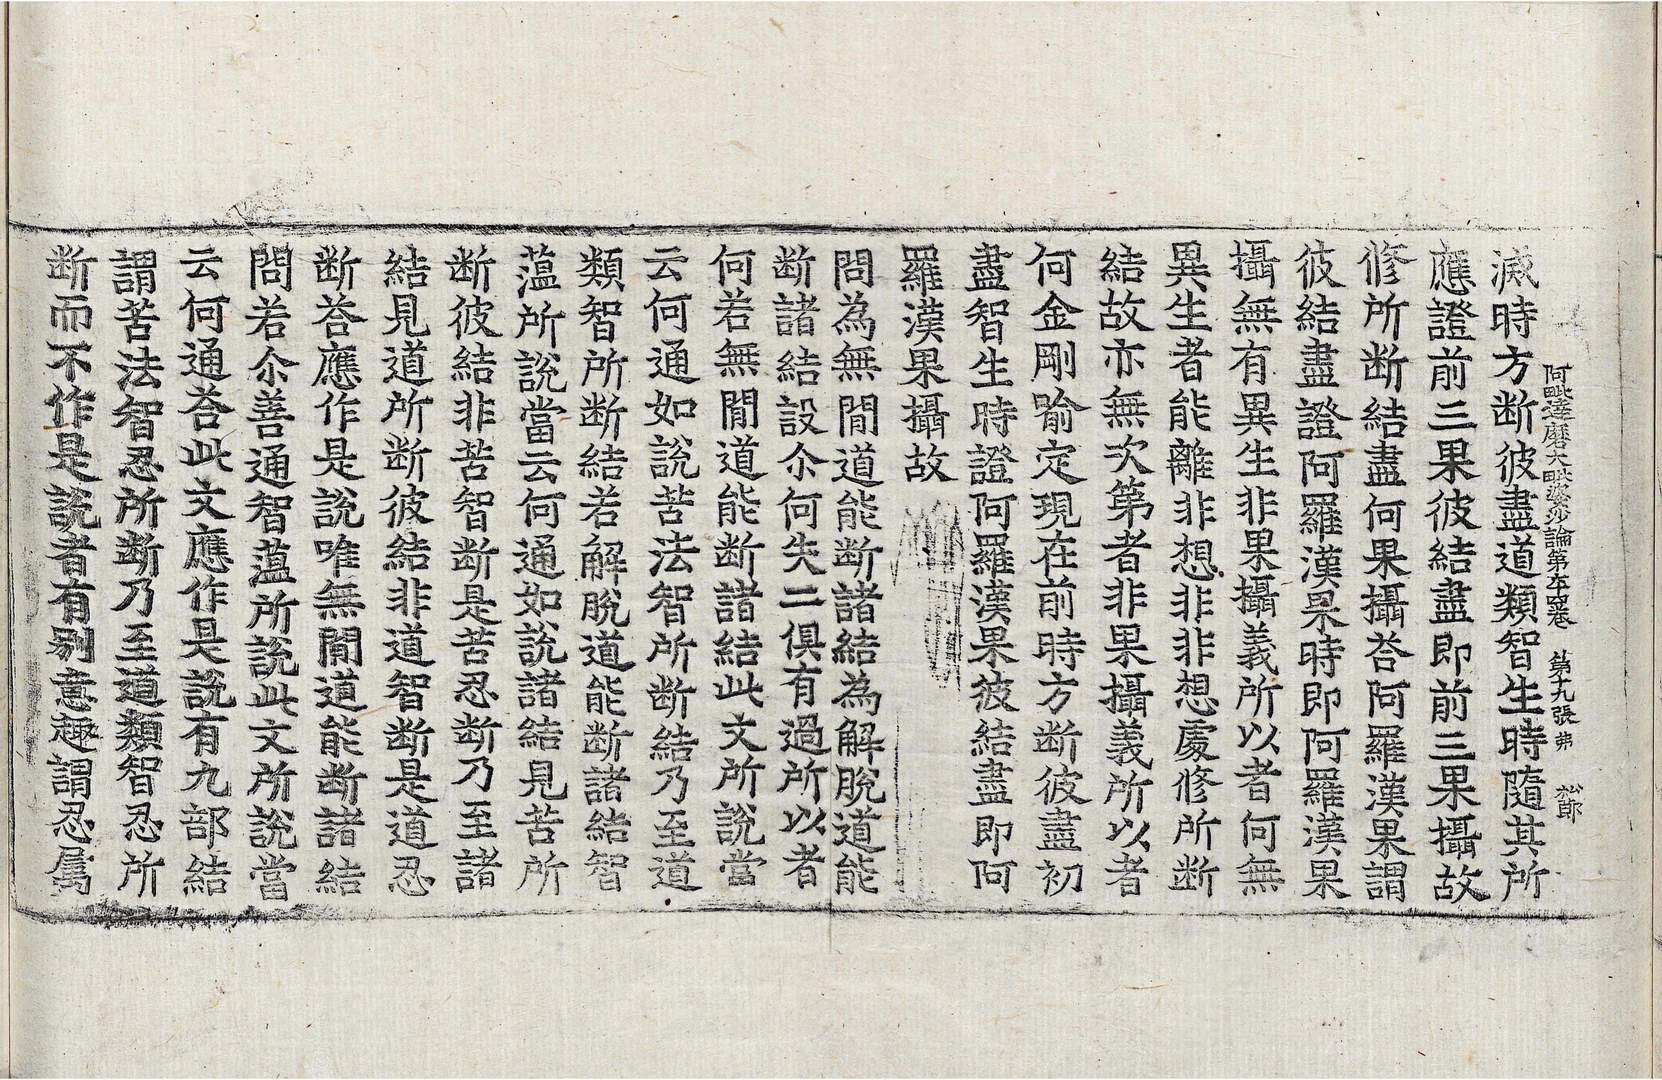 阿毗達磨大毗婆沙論第五十四卷　第十九張　弗　松節
滅時方断彼盡道類智生時隨其所
應證前三果彼結盡即前三果攝故
修所断結盡何果攝荅阿羅漢果謂
彼結盡證阿羅漢果時即阿羅漢果
攝無有異生非果攝義所以者何無
異生者能離非想非非想處修所断
結故亦無次第者非果攝義所以者
何金剛喻定現在前時方断彼盡初
盡智生時證阿羅漢果彼結盡即阿
羅漢果攝故
問為無閒道能断諸結為解脫道能
断諸結設尒何失二俱有過所以者
何若無閒道能断諸結此文所說當
云何通如說苦法智所断結乃至道
類智所断結若解脫道能断諸結智
蕰所說當云何通如說諸結見苦所
断彼結非苦智断是苦忍断乃至諸
結見道所断彼結非道智断是道忍
断荅應作是說唯無閒道能断諸結
問若尒善通智蕰所說此文所說當
云何通荅此文應作是說有九部結
謂苦法智忍所断乃至道類智忍所
断而不作是說者有別意趣謂忍屬